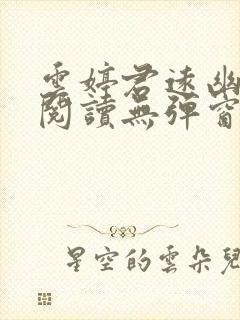 雲婷君遠幽
閱讀無彈窗
星空的雲朵兒